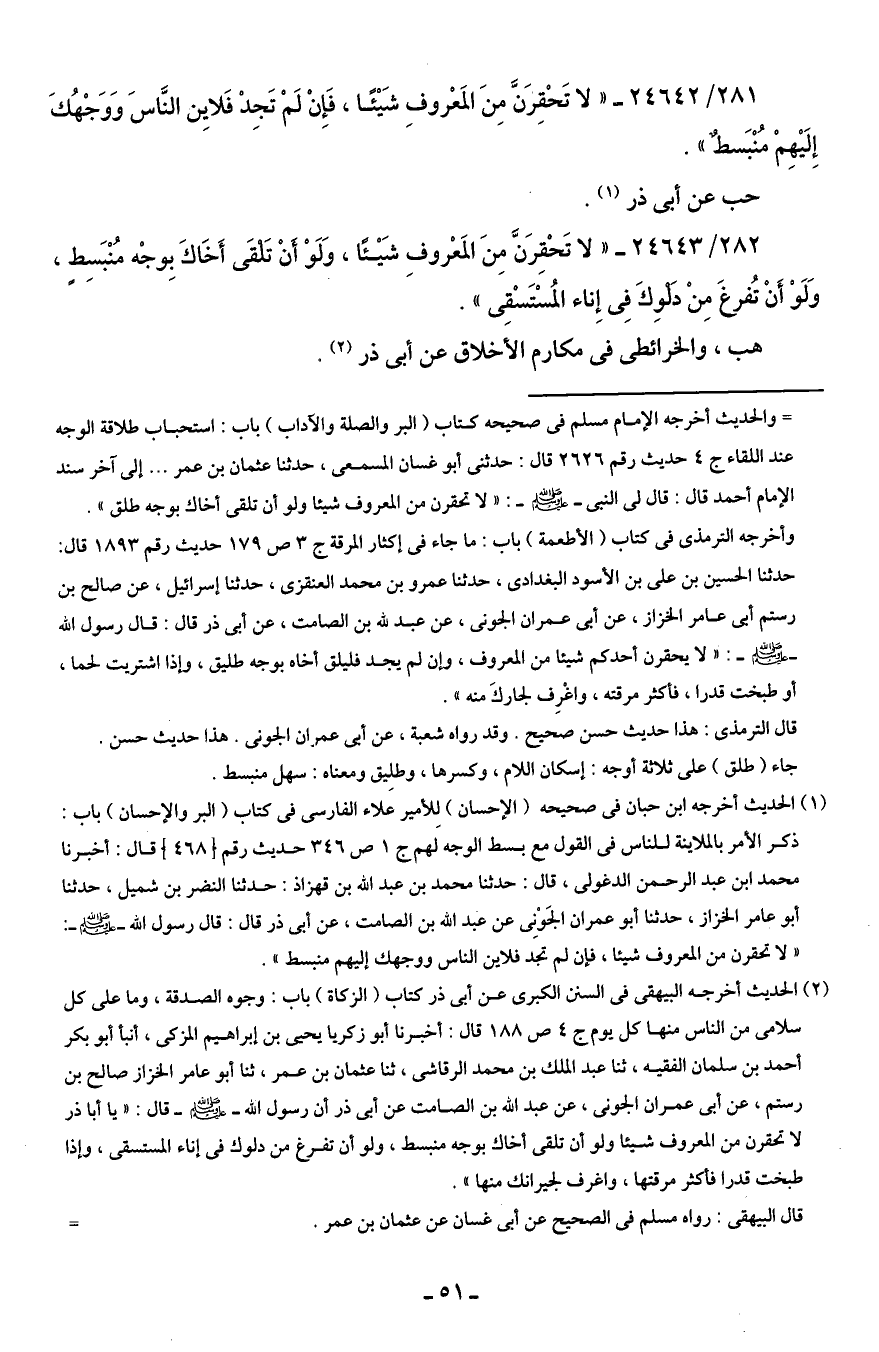 ٢٨١/ ٢٤٦٤٢ ـ « لا تَحْقِرَنَّ مِنَ المَعْروفِ شَيْئًا ، فَإنْ لَمْ تَجِدْ فَلاَيِنِ النَّاسَ وَوَجْهُكَ
إِلَيْهِمْ مُنْبَسطٌ » .
حب عن أبى ذر (١) .
٢٨٢/ ٢٤٦٤٣ ـ « لا تَحْقِرَنَّ مِنَ المَعْروفِ شَيْـئًا ، وَلَوْ أَنْ تَلْقَى أَخَاكَ بِوجْه مُنْبَسِطٍ ،
وَلَوْ أَنْ تُفرغَ مِنْ دَلْوِكَ فِى إناء المُسْتَسْقِى » .
هب ، والخرائطى فى مكارم الأخلاق عن أبى ذر (٢) .
= والحديث أخرجه الإمـام مسلم فى صحيحه كـتاب ( البر والصلة والآداب ) باب : استحبـاب طلاقة الوجه
عند اللقاء ج ٤ حديث رقم ٢٦٢٦ قال : حدثنى أبو غسان المسمـعى ، حدثنا عثمان بن عمر ... إلى آخر سند
الإمام أحمد قال : قال لى النبى ـ ﷺ ـ : « لا تحقرن من المعروف شيئا ولو أن تلقى أخاك بوجه طلق » .
وأخرجه الترمذى فى كتاب ( الأطعمة ) باب : ما جاء فى إكثار المرقة ج ٣ ص ١٧٩ حديث رقم ١٨٩٣ قال:
حدثنا الحسين بن على بن الأسود البغدادى ، حدثنا عمرو بن محمد العنقزى ، حدثنا إسرائيل ، عن صالح بن
رستم أبى عـامر الخزاز ، عن أبى عـمران الجونى ، عن عبـد لله بن الصامت ، عن أبى ذر قال : قـال رسول الله
ـ ﷺ ـ : « لا يحقرن أحدكم شيئا من المعروف ، وإن لم يجـد فليلق أخاه بوجه طليق ، وإذا اشتريت لحما ،
أو طبخت قدرا ، فأكثر مرقته ، واغْرِف لجاركَ منه » .
قال الترمذى : هذا حديث حسن صحيح . وقد رواه شعبة ، عن أبى عمران الجونى . هذا حديث حسن .
جاء ( طلق ) على ثلاثة أوجه : إسكان اللام ، وكسرها ، وطليق ومعناه : سهل منبسط .
(١) الحديث أخرجه ابن حبان فى صحيحه ( الإحسان ) للأمير علاء الفارسى فى كتاب ( البر والإحسان ) باب :
ذكـر الأمر بالملاينة لـلناس فى القول مع بـسط الوجه لهم ج ١ ص ٣٤٦ حـديث رقم { ٤٦٨ } قـال : أخبـرنا
محمد ابن عبد الرحـمن الدغولى ، قال : حدثنا محمد بن عبد الله بن قهزاذ : حـدثنا النضر بن شميل ، حدثنا
أبو عامر الخزاز ، حدثنا أبو عمران الجَوْنِى عن عبد الله بن الصامت ، عن أبى ذر قال : قال رسول الله ـ ﷺ ـ:
« لا تحقرن من المعروف شيئا ، فإن لم تجد فلاين الناس ووجهك إليهم منبسط » .
(٢) الحديث أخرجـه البيهقى فى السنن الكبرى عـن أبى ذر كتاب ( الزكاة ) باب : وجوه الصـدقة ، وما على كل
سلامى من الناس منهـا كل يوم ج ٤ ص ١٨٨ قال : أخبـرنا أبو زكريا يحيى بن إبراهيـم المزكى ، أنبأ أبو بكر
أحمد بن سلمان الفقيـه ، ثنا عبد الملك بن محمد الرقاشى ، ثنا عثمان بن عـمر ، ثنا أبو عامر الخزاز صالح بن
رستم ، عن أبى عمـران الجونى ، عن عبد الله بن الصـامت عن أبى ذر أن رسول الله ـ ﷺ ـ قال : « يا أبا ذر
لا تحقرن من المعروف شـيئا ولو أن تلقى أخاك بوجه منبسط ، ولو أن تفـرغ من دلوك فى إناء المستسقى ، وإذا
طبخت قدرا فأكثر مرقتها ، واغرف لجيرانك منها » .
قال البيهقى : رواه مسلم فى الصحيح عن أبى غسان عن عثمان بن عمر . =
ـ ٥١ ـ